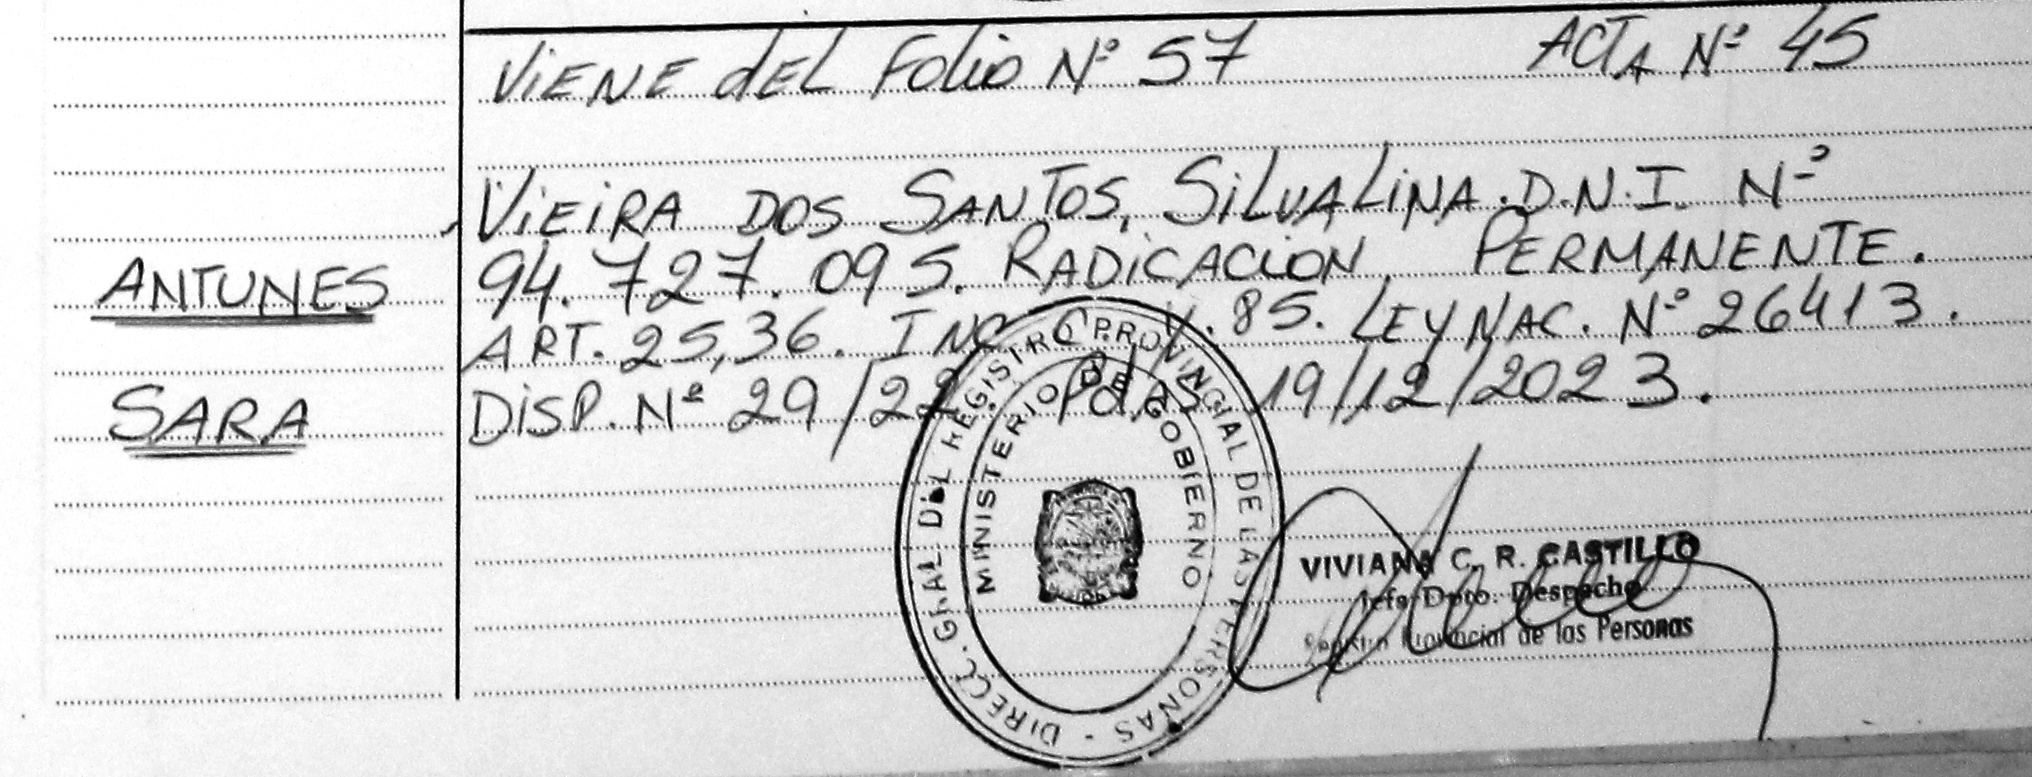 ViENE dEL Folio Nº 57 ACTA Nº 45
ViEiRA DOS SANTOS, SiLVALiNA. D.N.I. Nº
ANTUNES
94.727.095. RADiCACiON PERMANENTE.
ART. 25,36. INC Y. 85. LEY NAC. Nº 26413.
SARA
DiSP. Nº 29/22. Pdas 19/12/2023.
DIRECC. GRAL DEL REGISTRO PROVINCIAL DE LAS PERSONAS -
MINISTERIO DE GOBIERNO
VIVIANA C. R. CASTILLO
Jefa Dpto. Despacho
Registro Provincial de las Personas